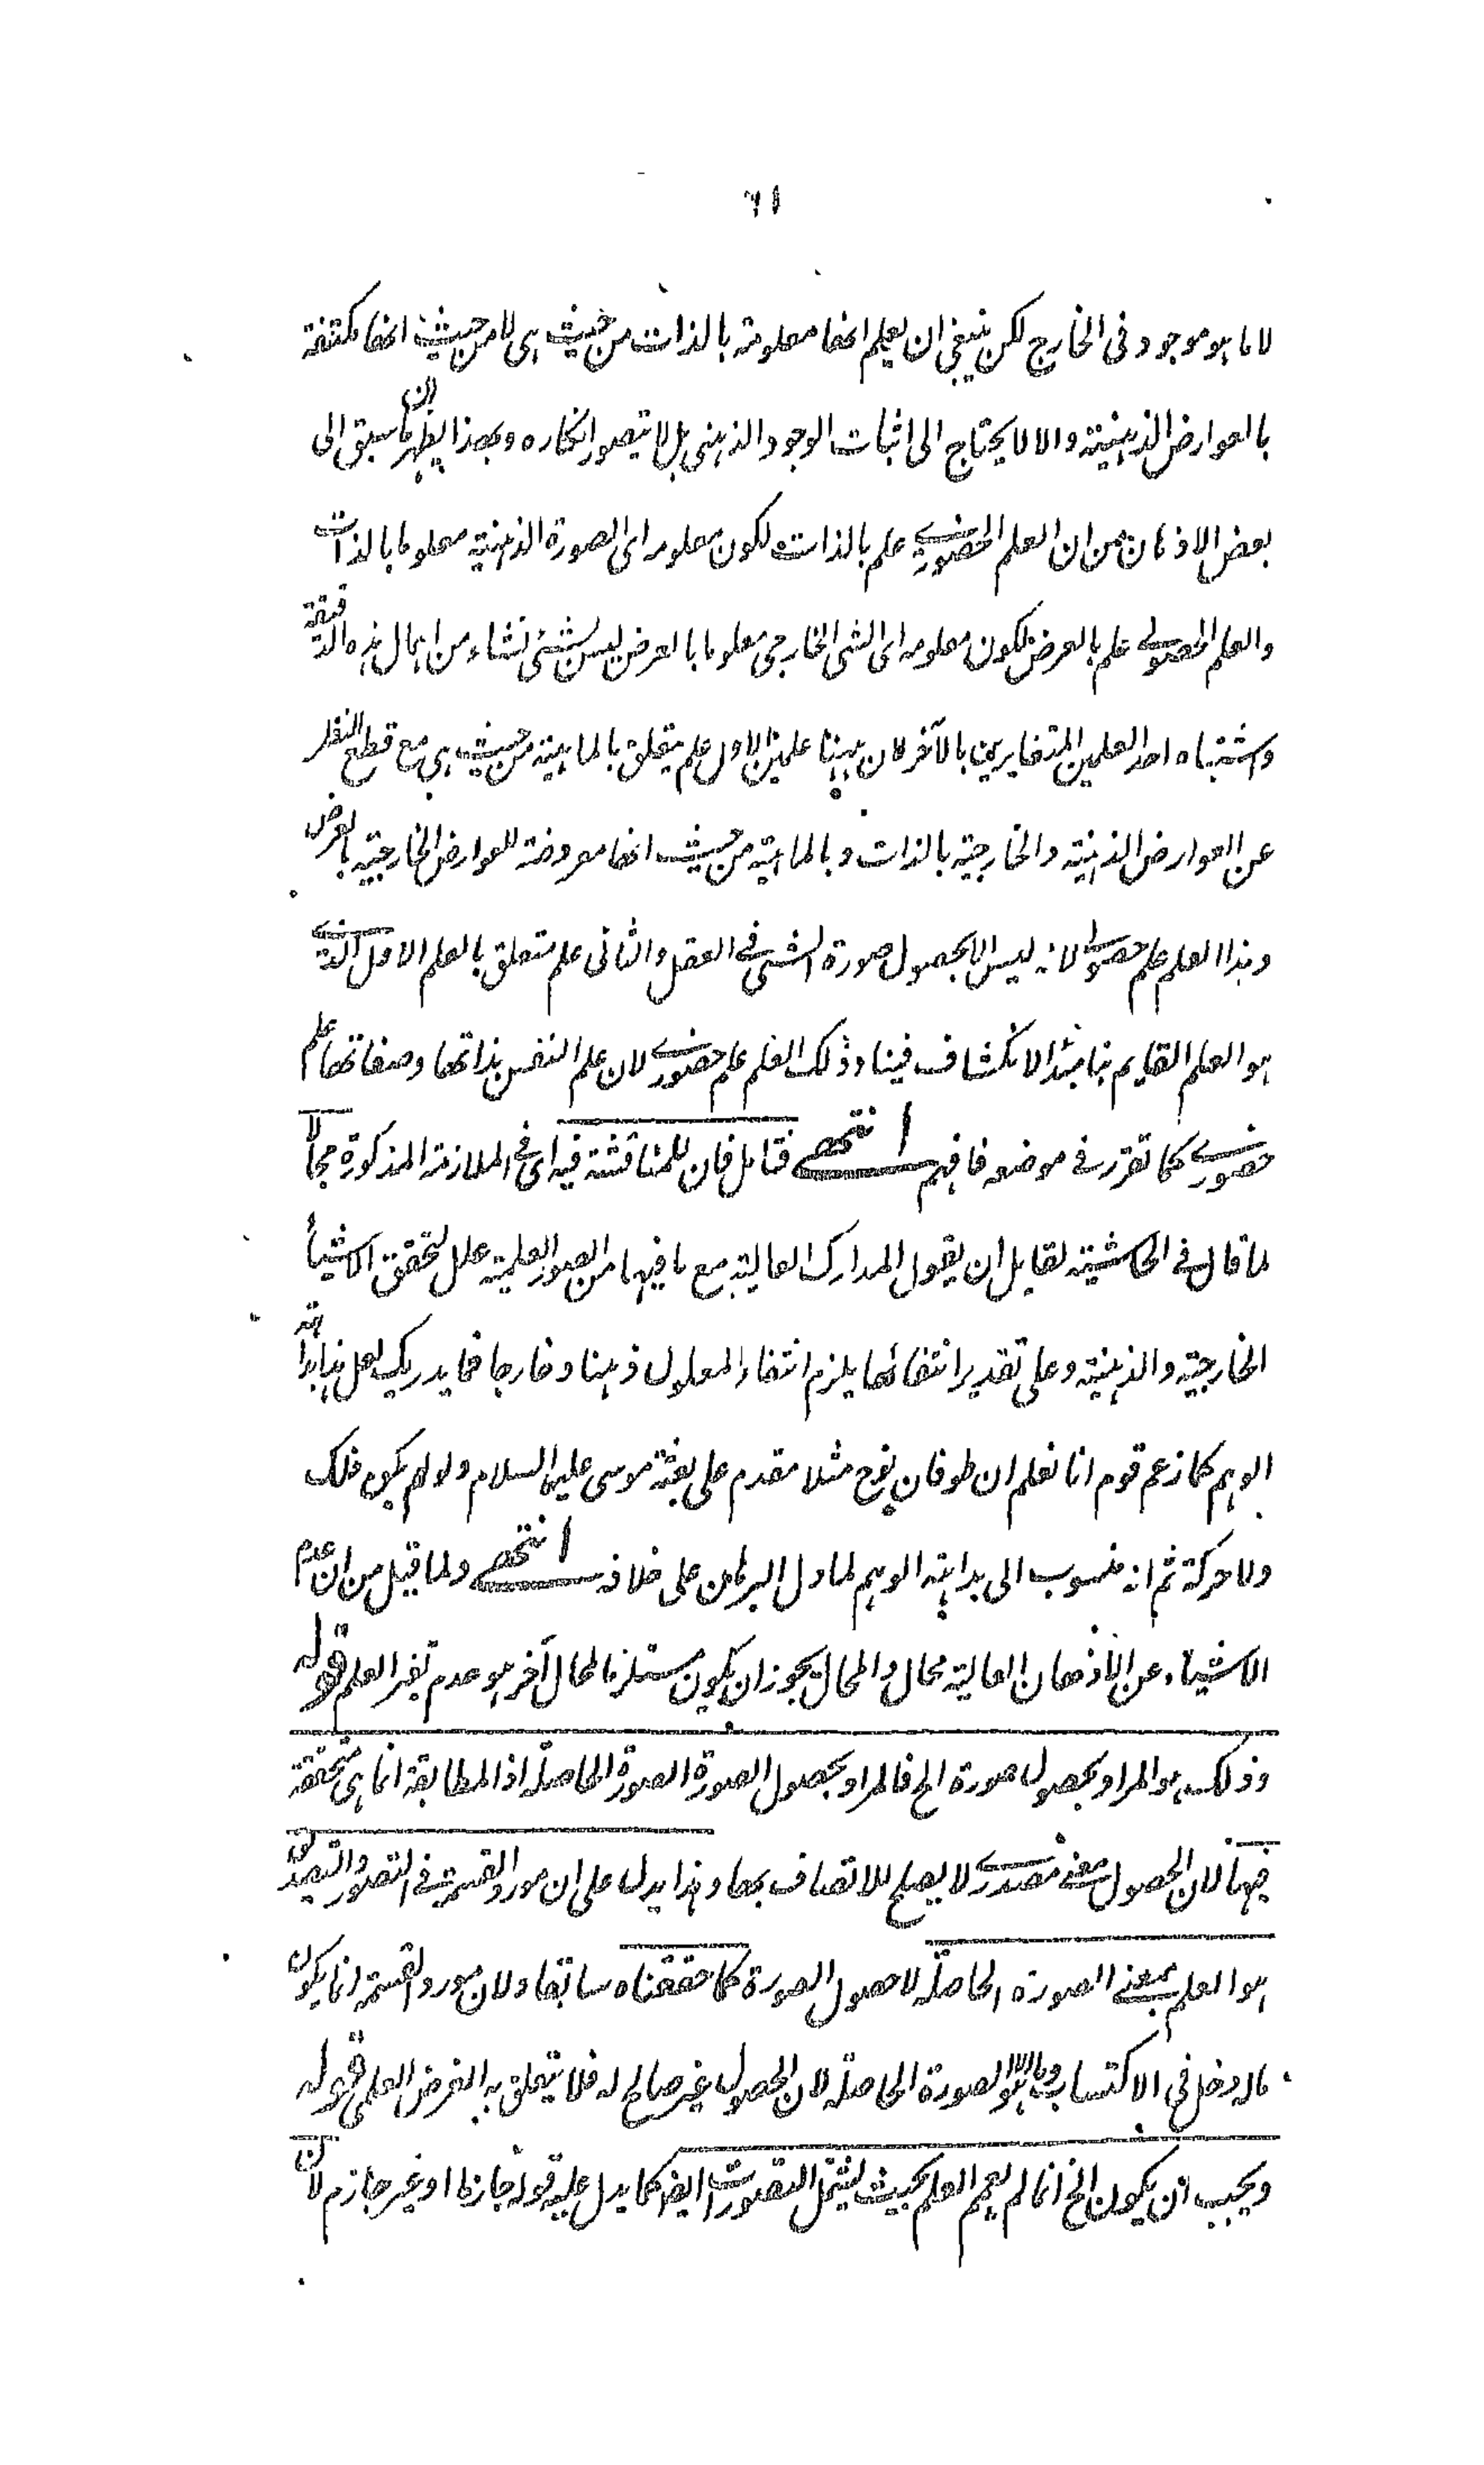 ٦١
لا ما هو موجود فى الخارج لكن ينبغى ان يعلم انها معلومة بالذات من حيث هى لا من حيث انها مكتنفة
با العوارض الذهنية والا لا يحتاج الى اثبات الوجود الذهنى بل لا يتصور انكاره وبهذا يظهر ان ما سبق الى
بعض الاذهان من ان العلم الحضورى علم بالذات لكون معلومه اى الصورة الذهنية معلوما بالذات
والعلم الحصولى علم بالعرض لكون معلومه اى الشى الخارجى معلوما با لعرض ليس بشئى نشاء من اهمال هذه الدقيقة
واشتباه احد العلمين المتغايرين بالآخر لان ههنا علمين الاول علم يتعلق بالماهية من حيث هى مع قطع النظر
عن العوارض الذهنية والخارجية بالذات وبالماهية من حيث انها معروضة للعوارض الخارجية بالعرض
وهذا العلم علم حصولى لانه ليس الا بحصول صورة الشئى فى العقل والثانى علم متعلق بالعلم الاول الذى
هو العلم القايم بنا مبدأ الانكشاف فينا وذلك العلم علم حضورى لان علم النفس بذاتها وصفاتها علم
حضورى كما تقرر فى موضعه فافهم انتهى فتامل فان للمناقشة فيه اى فى الملازمة المذكورة مجالا
لما قال فى الحاشية لقايل ان يقول المدارك العالية مع ما فيها من الصور العلمية علل لتحقق الاشياء
الخارجية والذهنية وعلى تقدير انتفائها يلزم انتفاء المعلول ذهنا وخارجا فما يدريك لعل هذا بداهة
الوهم كما زعم قوم انا نعلم ان طوفان نوح مثلا مقدم على بعثة موسى عليهما السلام ولو لم يكن فلك
ولا حركة ثم انه منسوب الى بداهة الوهم لما دل البرهان على خلافه انتهى ولما قيل من ان عدم
الاشياء عن الأذهان العالية محال والمحال يجوز ان يكون مستلزما لمحال آخر هو عدم تغير العلم قوله
وذلك هو المراد بحصول صورة الخ فالمراد بحصول الصورة الصورة الحاصلة اذ المطابقة انما هى متحققة
فيها لان الحصول معنى مصدرى لا يصلح للاتصاف بها وهذا يدل على ان مورد القسمة فى التصور والتصديق
هو العلم بمعنى الصورة الحاصلة لا حصول الصورة كما حققناه سابقا ولان مورد القسمة انما يكون
ماله دخل فى الاكتساب وما هو الا الصورة الحاصلة لان الحصول غير صالح له فلا يتعلق به الغرض العلمى قوله
ويجب ان يكون الخ انما لم يعمم العلم بحيث ليشمل التصورات ايضا كما يدل عليه قوله جازما او غير جازم لان